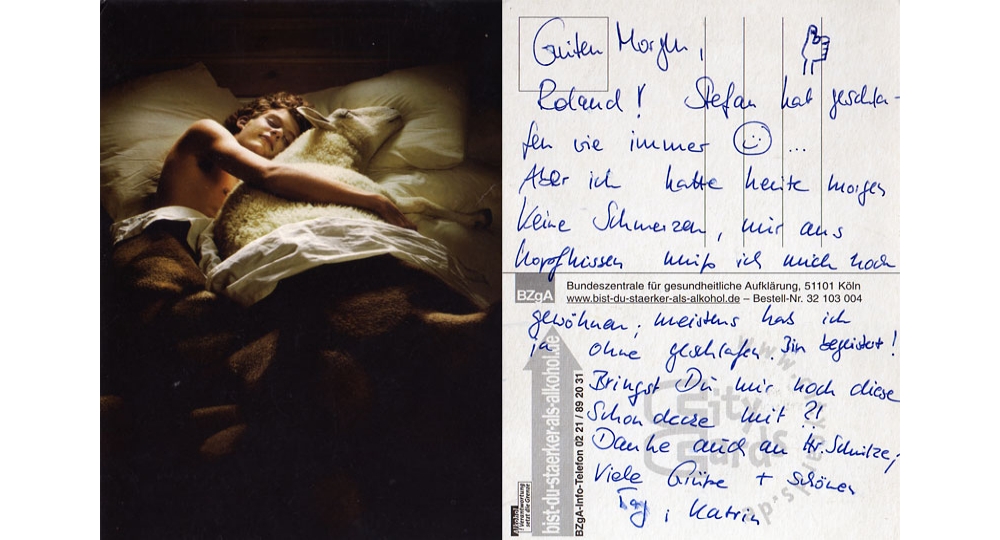 Guten Morgen,
Roland! Stefan hat geschla-
fen wie immer ☺ ...
Aber ich hatte heute morgen
keine Schmerzen, nur ans
Kopfkissen muß ich mich noch
BZgA
Bundeszentrale für gesundheitliche Aufklärung, 51101 Köln
www.bist-du-staerker-als-alkohol.de – Bestell-Nr. 32 103 004
gewöhnen, meistens hab ich
ja ohne geschlafen. Bin begeistert!
Bringst Du mir noch diese
Schondecke mit ?!
Danke auch an Hr. Schulze,
Viele Grüße + schönen
Tag, Katrin
bist-du-staerker-als-alkohol.de
BZgA-Info-Telefon 02 21 / 89 20 31
Alkohol
Verantwortung
setzt die Grenze
City
Cards